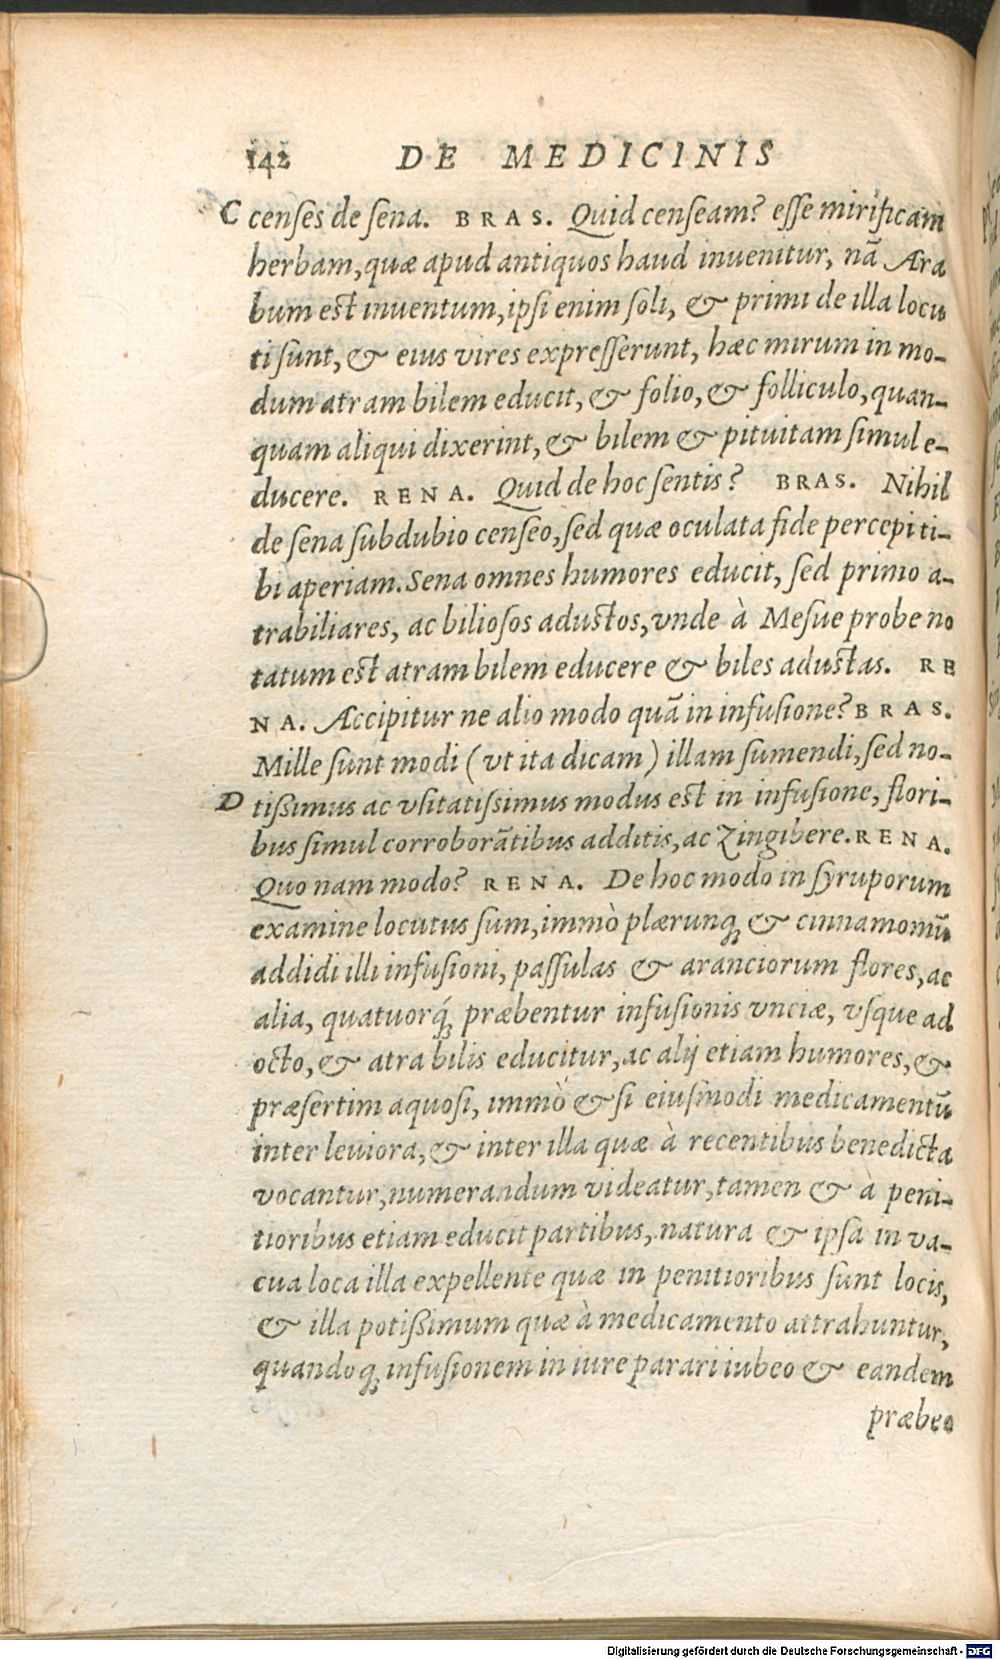 142 DE MEDICINIS
C censes de sena. BRAS. Quid censeam? esse mirificam
herbam, quæ apud antiquos haud inuenitur, nã Ara
bum est inuentum, ipsi enim soli, & primi de illa locu
ti sunt, & eius vires expresserunt, hæc mirum in mo-
dum atram bilem educit, & folio, & folliculo, quan-
quam aliqui dixerint, & bilem & pituitam simul e-
ducere. RENA. Quid de hoc sentis? BRAS. Nihil
de sena subdubio censeo, sed quæ oculata fide percepi ti-
bi aperiam. Sena omnes humores educit, sed primo a-
trabiliares, ac biliosos adustos, vnde à Mesue probe no
tatum est atram bilem educere & biles adustas. RE
NA. Accipitur ne alio modo quã in infusione? BRAS.
Mille sunt modi (vt ita dicam) illam sumendi, sed no-
D tißimus ac vsitatissimus modus est in infusione, flori-
bus simul corroborãtibus additis, ac Zingibere. RENA.
Quo nam modo? RENA. De hoc modo in syruporum
examine locutus sum, immò plærunq; & cinnamomũ
addidi illi infusioni, passulas & aranciorum flores, ac
alia, quatuorq́; præbentur infusionis vnciæ, vsque ad
octo, & atra bilis educitur, ac alij etiam humores, &
præsertim aquosi, immò & si eiusmodi medicamentũ
inter leuiora, & inter illa quæ à recentibus benedicta
vocantur, numerandum videatur, tamen & à peni-
tioribus etiam educit partibus, natura & ipsa in va-
cua loca illa expellente quæ in penitioribus sunt locis,
& illa potißimum quæ à medicamento attrahuntur,
quandoq; infusionem in iure parari iubeo & eandem
præbeo
Digitalisierung gefördert durch die Deutsche Forschungsgemeinschaft - DFG